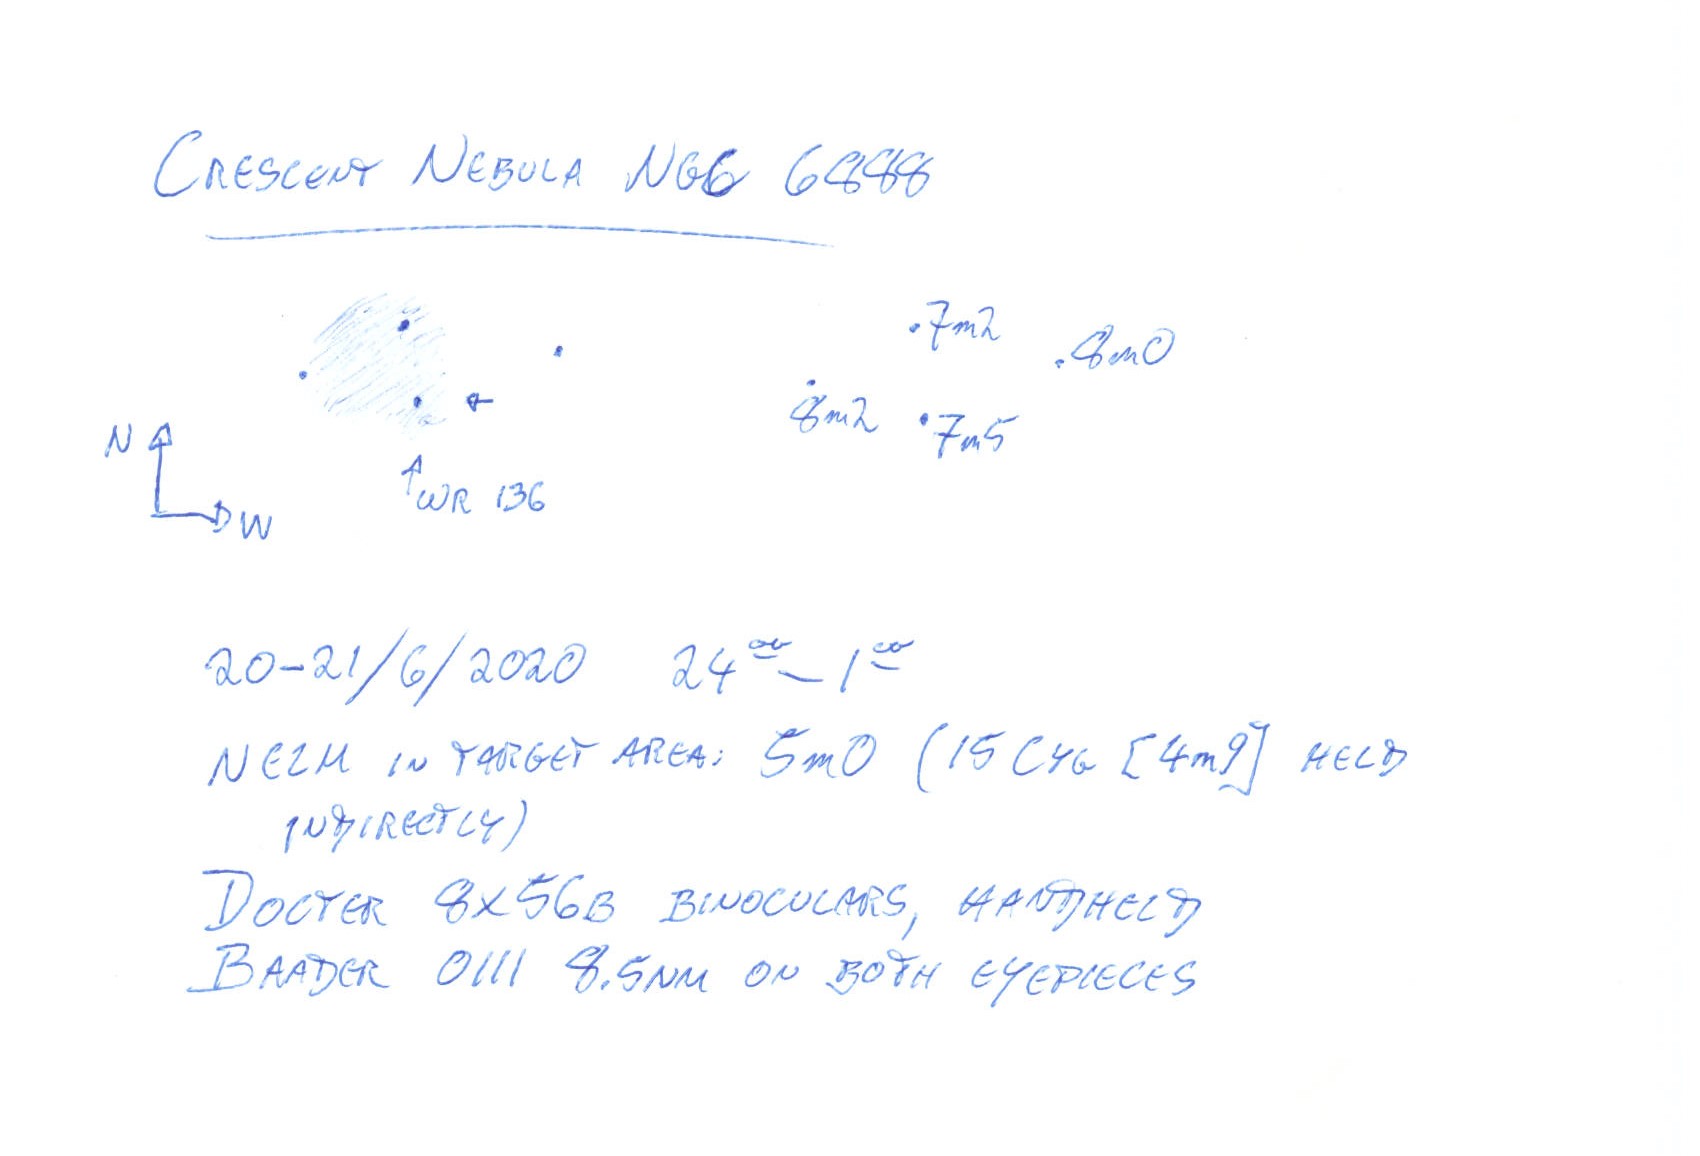 CRESCENT NEBULA NGC 6888
.7m2
.8m0
8m2 .7m5
N
WR 136
W
20-21/6/2020 24°° - 1°°
NELM IN TARGET AREA: 5m0 (15 CYG [4m9] HELD
INDIRECTLY)
DOCTER 8x56B BINOCULARS, HANDHELD
BAADER OIII 8.5NM ON BOTH EYEPIECES